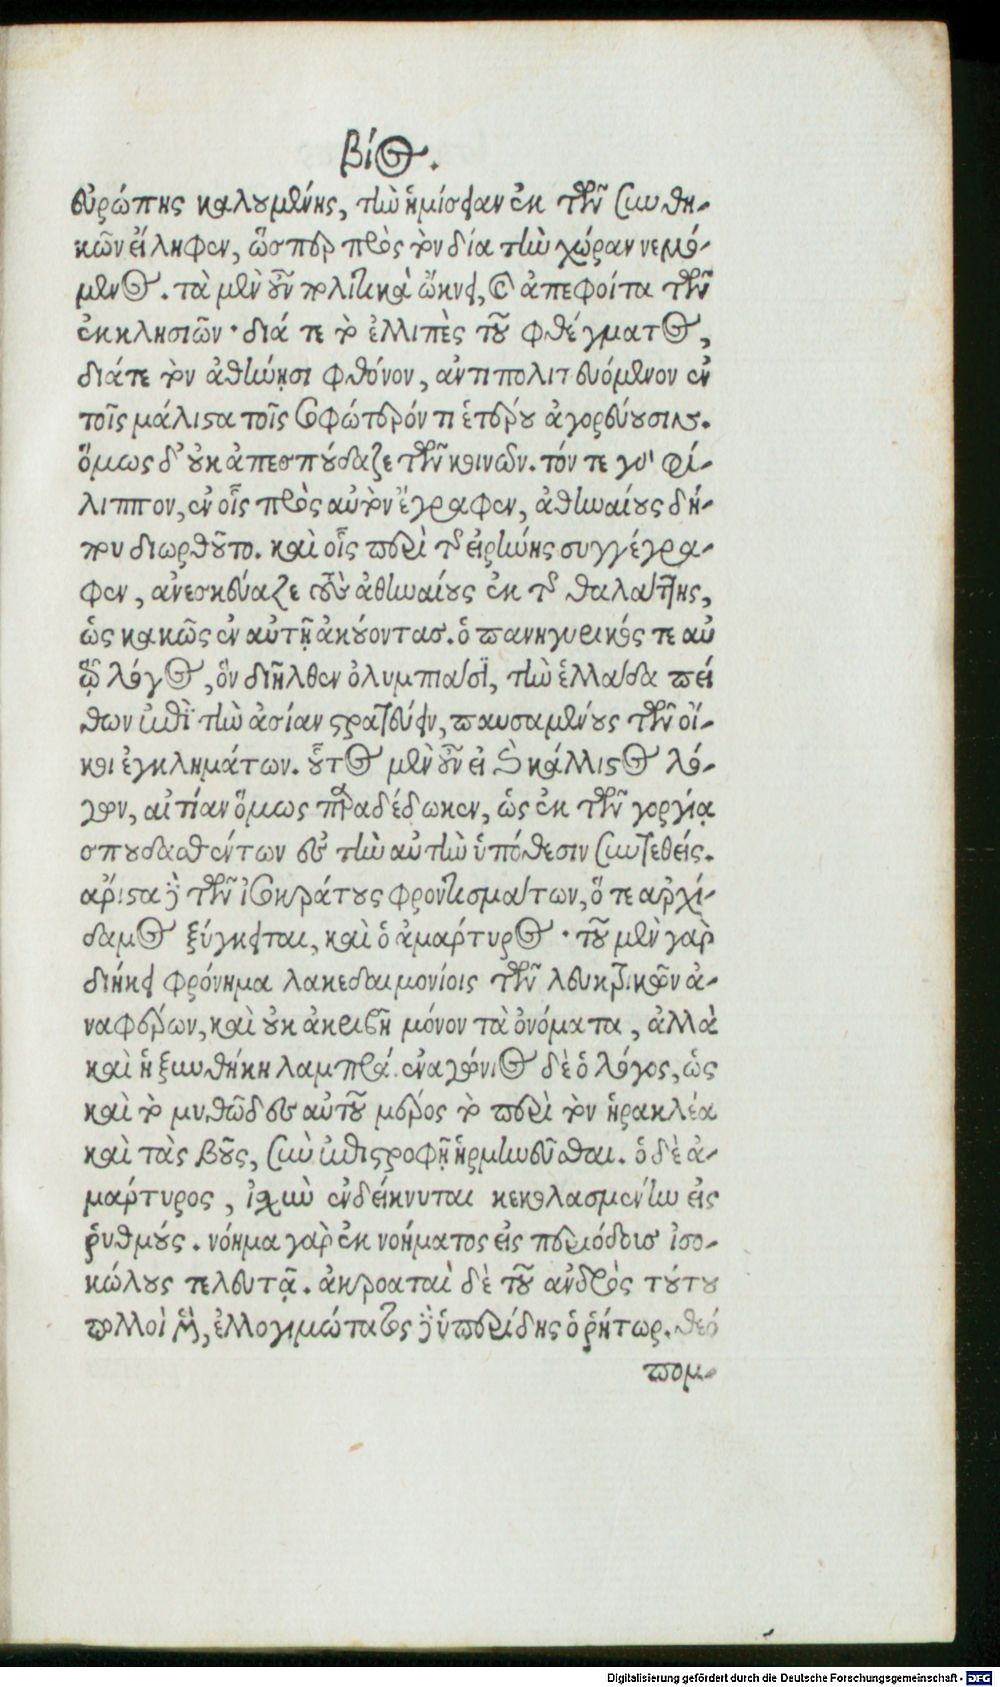 βίος.
εὐρώπης καλουμένης, τὴν ἡμίσειαν ἐκ τῶν συνθη-
κῶν εἴληφεν, ὥσπερ πρὸς τὸν δία τὴν χώραν νεμό-
μενος. τὰ μὲν οὖν πολιτικὰ ὤκνει, καὶ ἀπεφοίτα τῶν
ἐκκλησιῶν· διά τε τὸ ἐλλιπὲς τοῦ φθέγματος,
διάτε τὸν ἀθήνῃσι φθόνον, ἀντιπολιτευόμενον ἐν
τοῖς μάλιστα τοῖς σοφώτερόν τι ἑτέρου ἀγορεύουσιν.
ὅμως δ' οὐκ ἀπεσπούδαζε τῶν κοινῶν. τόν τε γὰρ φί-
λιππον, ἐν οἷς πρὸς αὐτὸν ἔγραφεν, ἀθηναίους δή-
που διωρθοῦτο. καὶ οἷς περὶ τῆς εἰρήνης συγγέγρα-
φεν, ἀνεσκεύαζε τοὺς ἀθηναίους ἐκ τῆς θαλάττης,
ὡς κακῶς ἐν αὐτῇ ἀκούοντας. ὁ πανηγυρικός τε αὐ
τῷ λόγος, ὃν διῆλθεν ὀλυμπίασϊ, τὴν ἑλλάδα πεί
θων ἐπὶ τὴν ἀσίαν στρατεύειν, παυσαμένους τῶν οἴ-
κοι ἐγκλημάτων. οὗτος μὲν οὖν εἰ καὶ κάλλιστος λό-
γων, αἰτίαν ὅμως παραδέδωκεν, ὡς ἐκ τῶν γοργίᾳ
σπουδασθέντων ἐς τὴν αὐτὴν ὑπόθεσιν συντεθείς.
ἄριστα δὲ τῶν ἰσοκράτους φροντισμάτων, ὅ τε ἀρχί-
δαμος ξύγκειται, καὶ ὁ ἀμάρτυρος· τοῦ μὲν γὰρ
διήκει φρόνημα λακεδαιμονίοις τῶν λευκτρικῶν ἀ-
ναφέρων, καὶ οὐκ ἀκριβῆ μόνον τὰ ὀνόματα, ἀλλὰ
καὶ ἡ ξυνθήκη λαμπρά. ἐναγώνιος δὲ ὁ λόγος, ὡς
καὶ τὸ μυθῶδες αὐτοῦ μέρος τὸ περὶ τὸν ἡρακλέα
καὶ τὰς βοῦς, σὺν ἐπιστροφῇ ἡρμηνεῦσθαι. ὁ δὲ ἀ-
μάρτυρος, ἰσχὺν ἐνδείκνυται κεκολασμένην εἰς
ῥυθμούς. νόημα γὰρ ἐκ νοήματος εἰς περιόδους ἰσο-
κώλους τελευτᾷ. ἀκροαταὶ δὲ τοῦ ἀνδρὸς τούτου
πολλοὶ μὲν, ἐλλογιμώτατος δὲ ὑπερίδης ὁ ῥήτωρ. θεό
πομ-
Digitalisierung gefördert durch die Deutsche Forschungsgemeinschaft - DFG